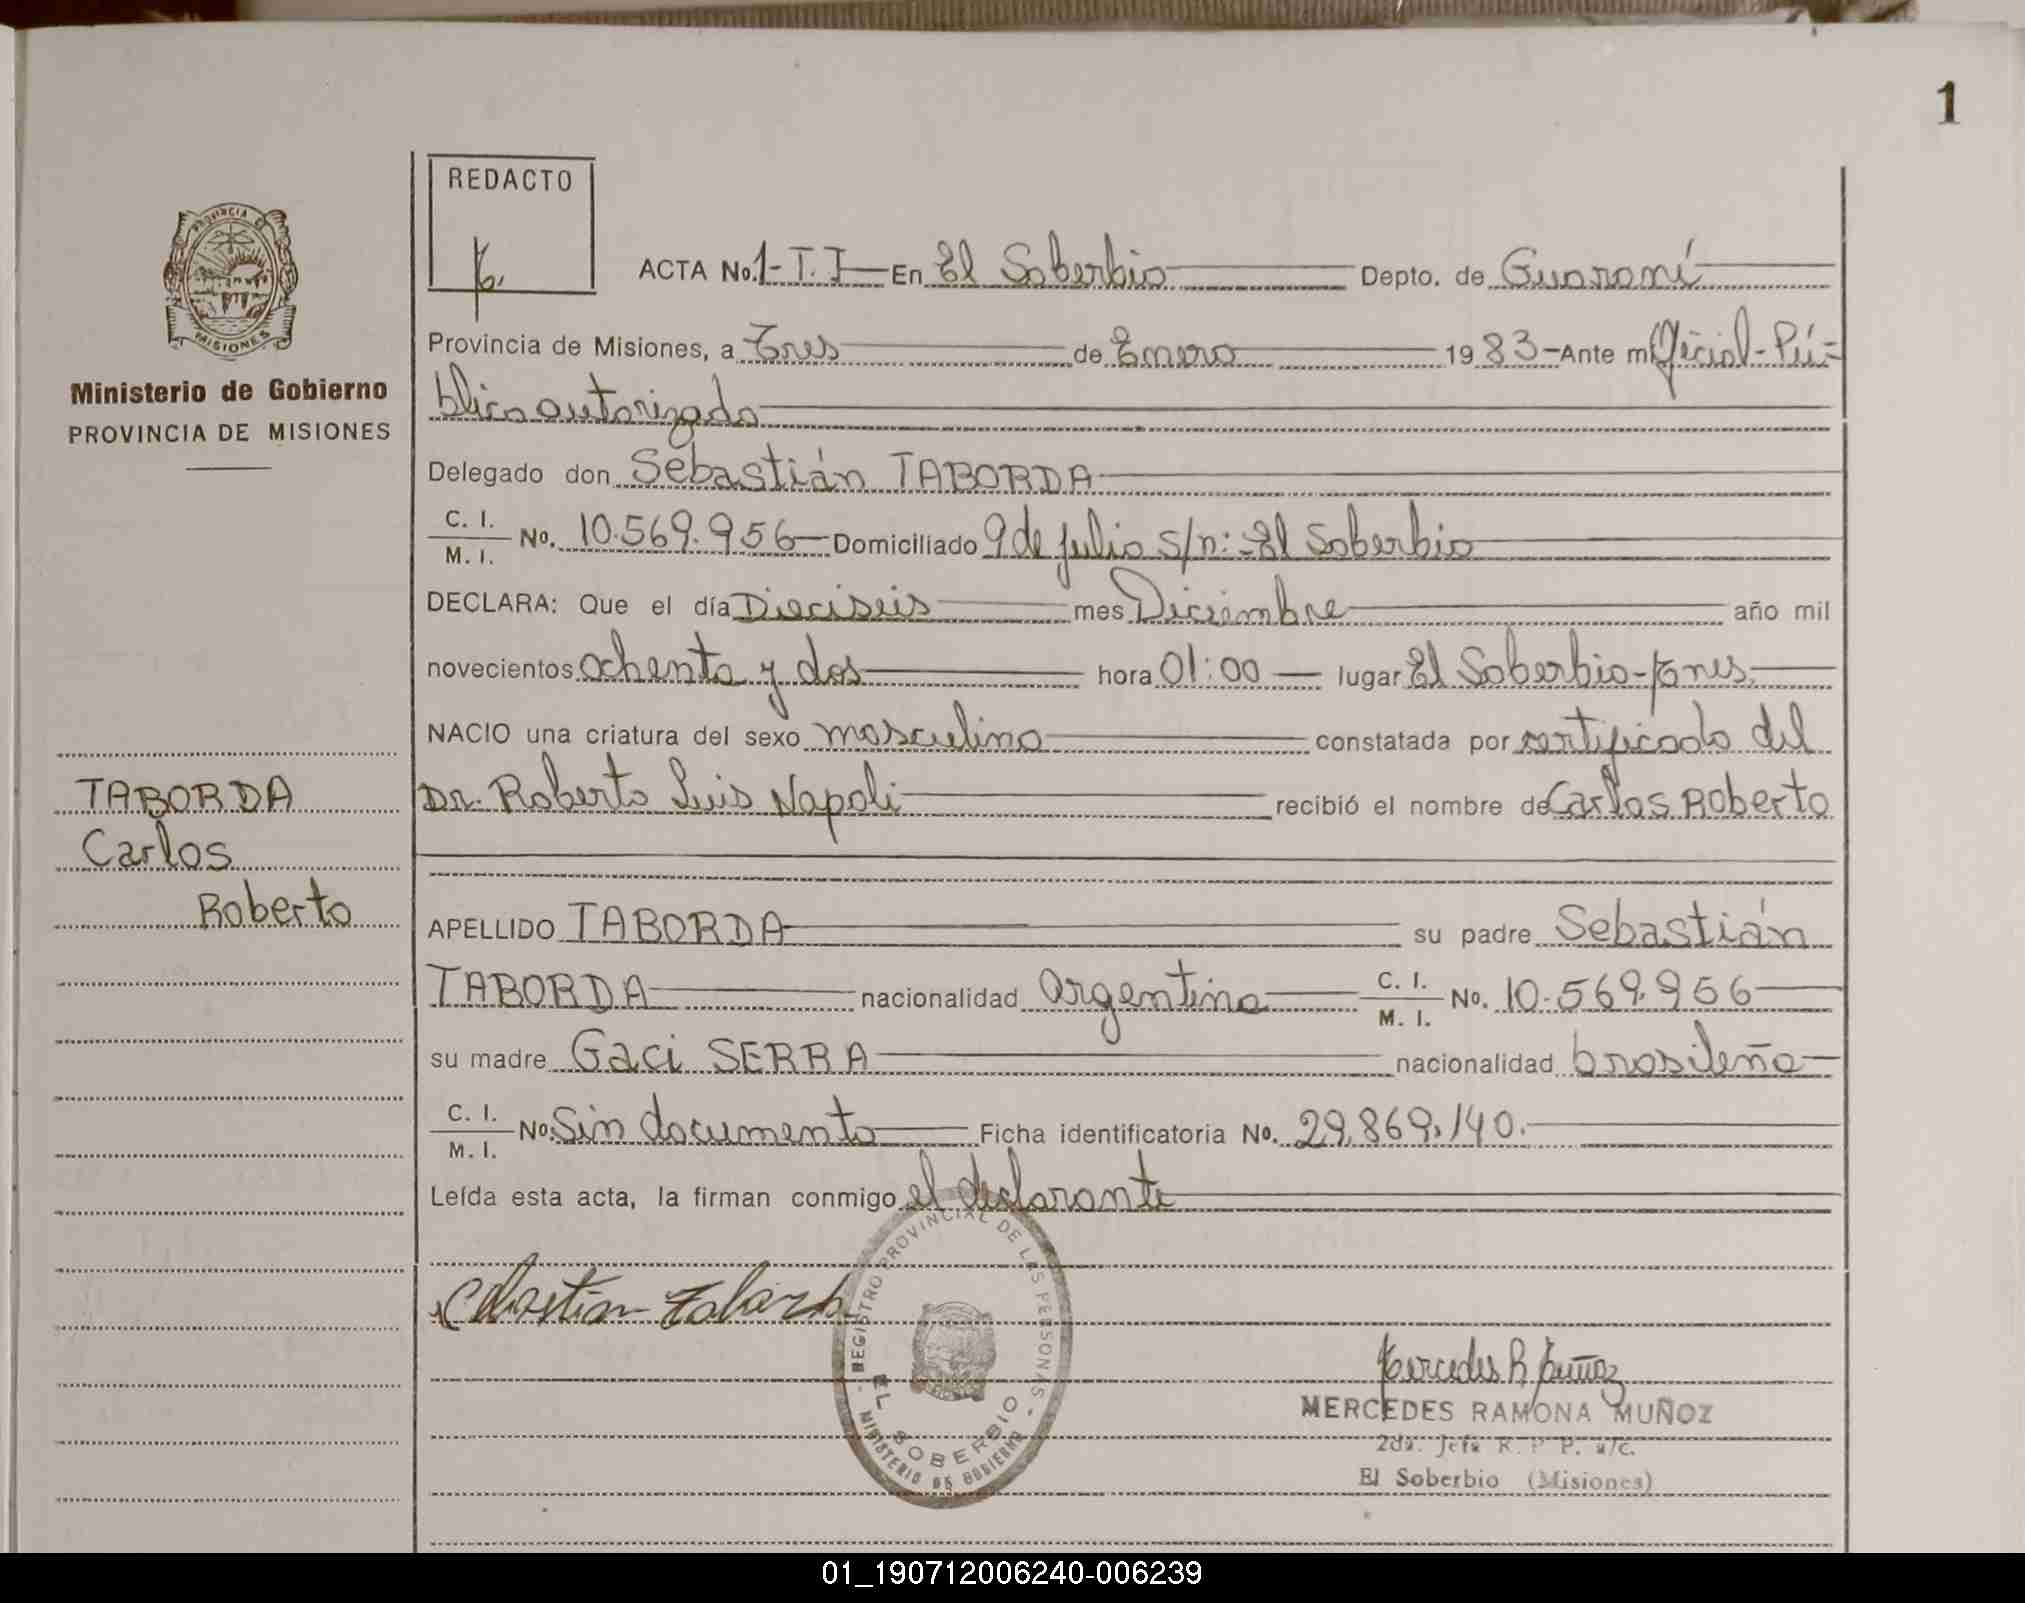 1
REDACTO
ACTA No. 1-T. I En El Soberbio Depto. de Guaraní
Provincia de Misiones, a Tres de Enero 1983-Ante mí Oficial-Pú-
blico autorizado
Delegado don Sebastián TABORDA
C. I.
M. I.
No. 10.569.956 Domiciliado 9 de julio s/n:-El Soberbio
DECLARA: Que el día Dieciseis mes Diciembre año mil
novecientos ochenta y dos hora 01:00 lugar El Soberbio-
NACIO una criatura del sexo masculino constatada por certificado del
Dr. Roberto Luis Napoli recibió el nombre de Carlos Roberto
APELLIDO TABORDA su padre Sebastián
TABORDA nacionalidad argentina C. I.
M. I.
No. 10.569.956
su madre Gaci SERRA nacionalidad brasileña
C. I.
M. I.
No. Sin documento Ficha identificatoria No. 29.869.140.
Leída esta acta, la firman conmigo el declarante
PROVINCIA DE
MISIONES
Ministerio de Gobierno
PROVINCIA DE MISIONES
TABORDA
Carlos
Roberto
Sebastian Taborda
REGISTRO PROVINCIAL DE LAS PERSONAS
EL SOBERBIO
MINISTERIO DE GOBIERNO
Mercedes R Muñoz
MERCEDES RAMONA MUÑOZ
2da. Jefa R. P. P. a/c.
El Soberbio (Misiones)
01_190712006240-006239